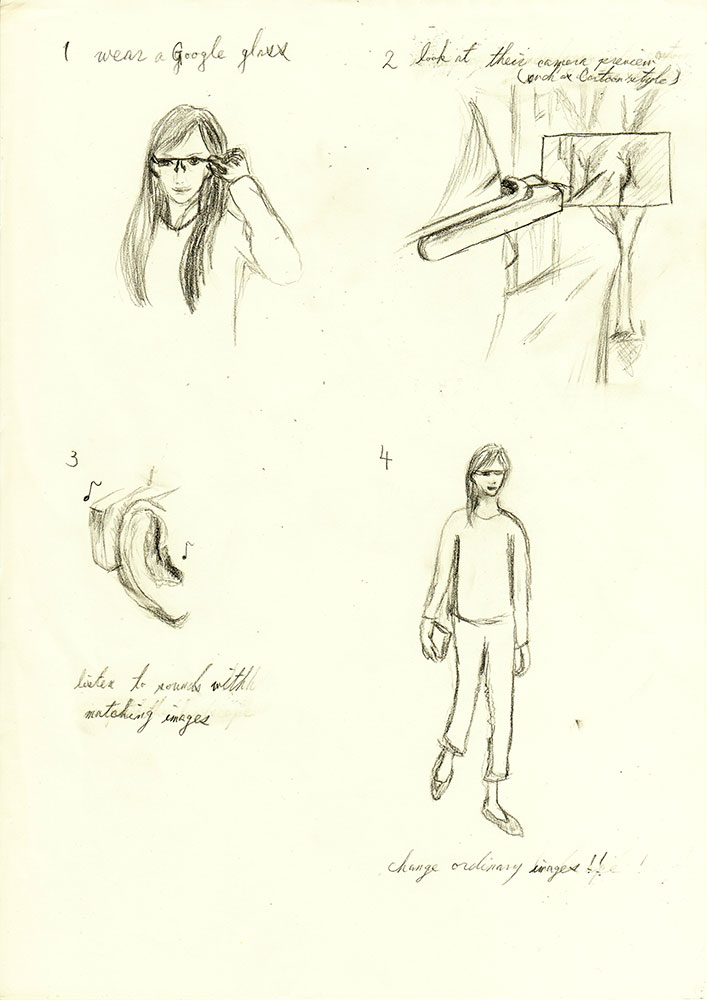 1 wear a Google glass
2 look at their camera preview
(such as Cartoon style)
3
listen to sounds with
matching images
4
change ordinary images !!